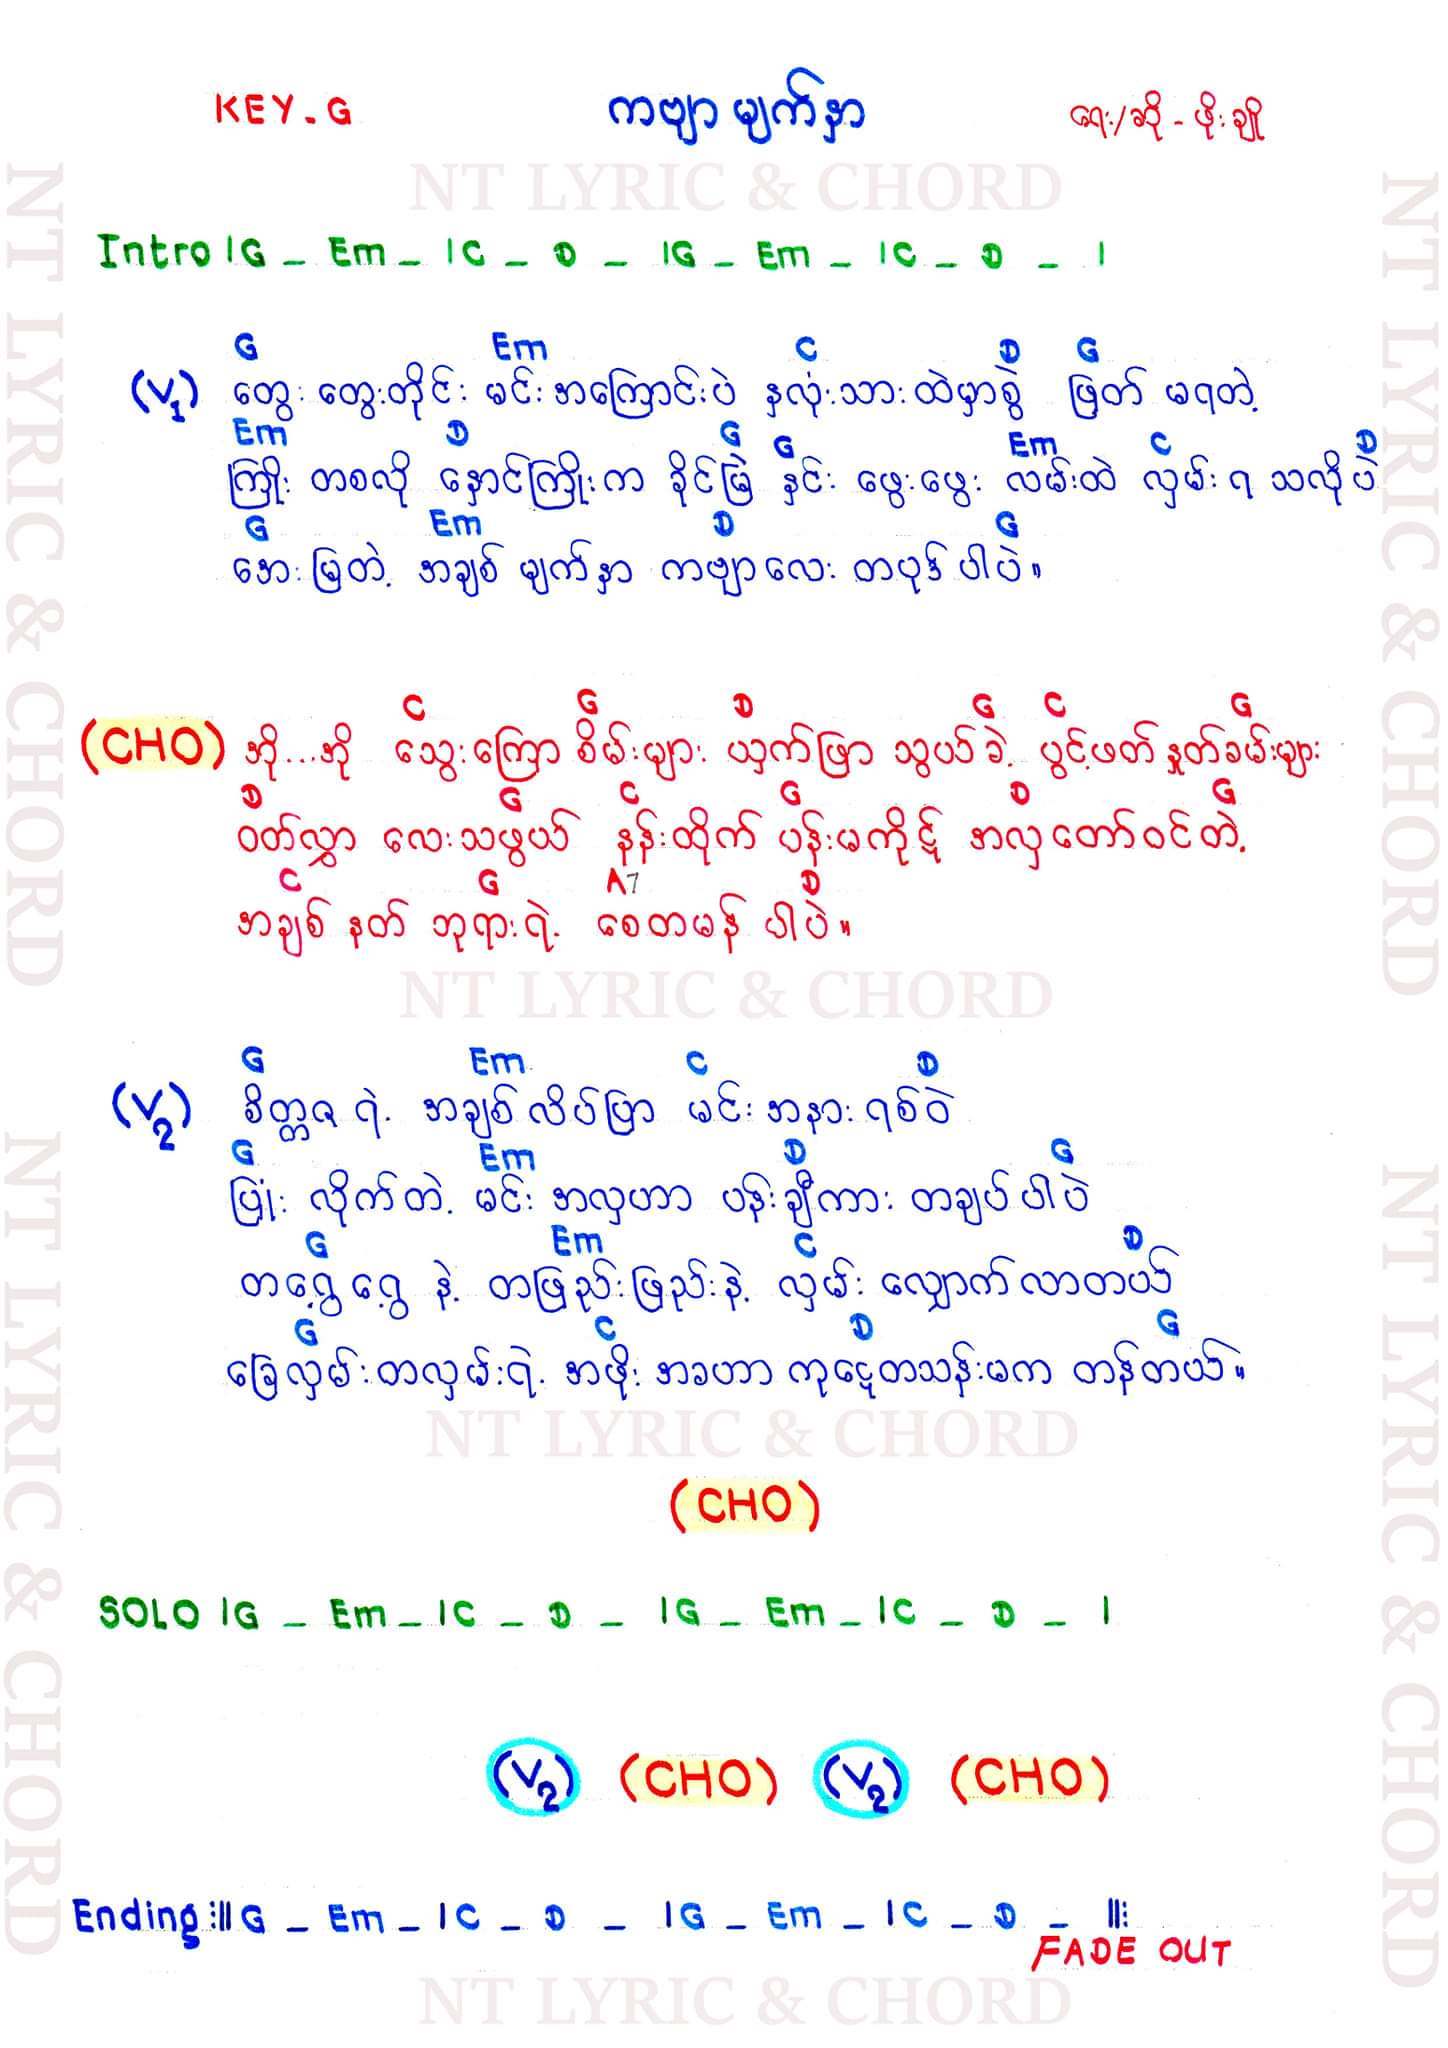 KEY.G ကဗျာ မျက်နှာ ရေး/ဆို - ဖိုးချို
NT LYRIC & CHORD
Intro |G _ Em _ |C _ D _ |G _ Em _ |C _ D _ |
G Em C D G
(V1) တွေး တွေးတိုင်း မင်းအကြောင်းပဲ နှလုံးသားထဲမှာစွဲ ဖြတ် မရတဲ့
Em D G G Em C D
ကြိုး တစလို နှောင်ကြိုးက ခိုင်မြဲ နှင်း ဖွေးဖွေး လမ်းထဲ လှမ်းရ သလိုပဲ
G Em D G
အေးမြတဲ့ အချစ် မျက်နှာ ကဗျာလေး တပုဒ်ပါပဲ။
C G D G C G
(CHO) အို...အို သွေးကြော စိမ်းများ ယှက်ဖြာ သွယ်ခဲ့ ပွင့်ဖတ်နှုတ်ခမ်းများ
D G C G D G
ဝတ်လွှာ လေးသဖွယ် နန်းထိုက် ပန်းမကိုဋ် အလှတော်ဝင်တဲ့
C G A7 D
အချစ် နတ် ဘုရားရဲ့ စေတမန် ပါပဲ။
NT LYRIC & CHORD
G Em C D
(V2) စိတ္တဇ ရဲ့ အချစ်လိပ်ပြာ မင်းအနားရစ်ဝဲ
G Em D G
ပြုံး လိုက်တဲ့ မင်းအလှဟာ ပန်းချီကား တချပ်ပါပဲ
G Em C D
တငွေ့ငွေ့ နဲ့ တဖြည်းဖြည်းနဲ့ လှမ်း လျှောက်လာတယ်
G C D G
ခြေလှမ်းတလှမ်းရဲ့ အဖိုး အခဟာ ကုဋေတသန်းမက တန်တယ်။
NT LYRIC & CHORD
(CHO)
SOLO |G _ Em _ |C _ D _ |G _ Em _ |C _ D _ |
(V2) (CHO) (V2) (CHO)
Ending :||| G _ Em _ |C _ D _ |G _ Em _ |C _ D _ |||:
FADE OUT
NT LYRIC & CHORD
NT LYRIC & CHORD
NT LYRIC & CHORD
NT LYRIC & CHORD
NT LYRIC & CHORD